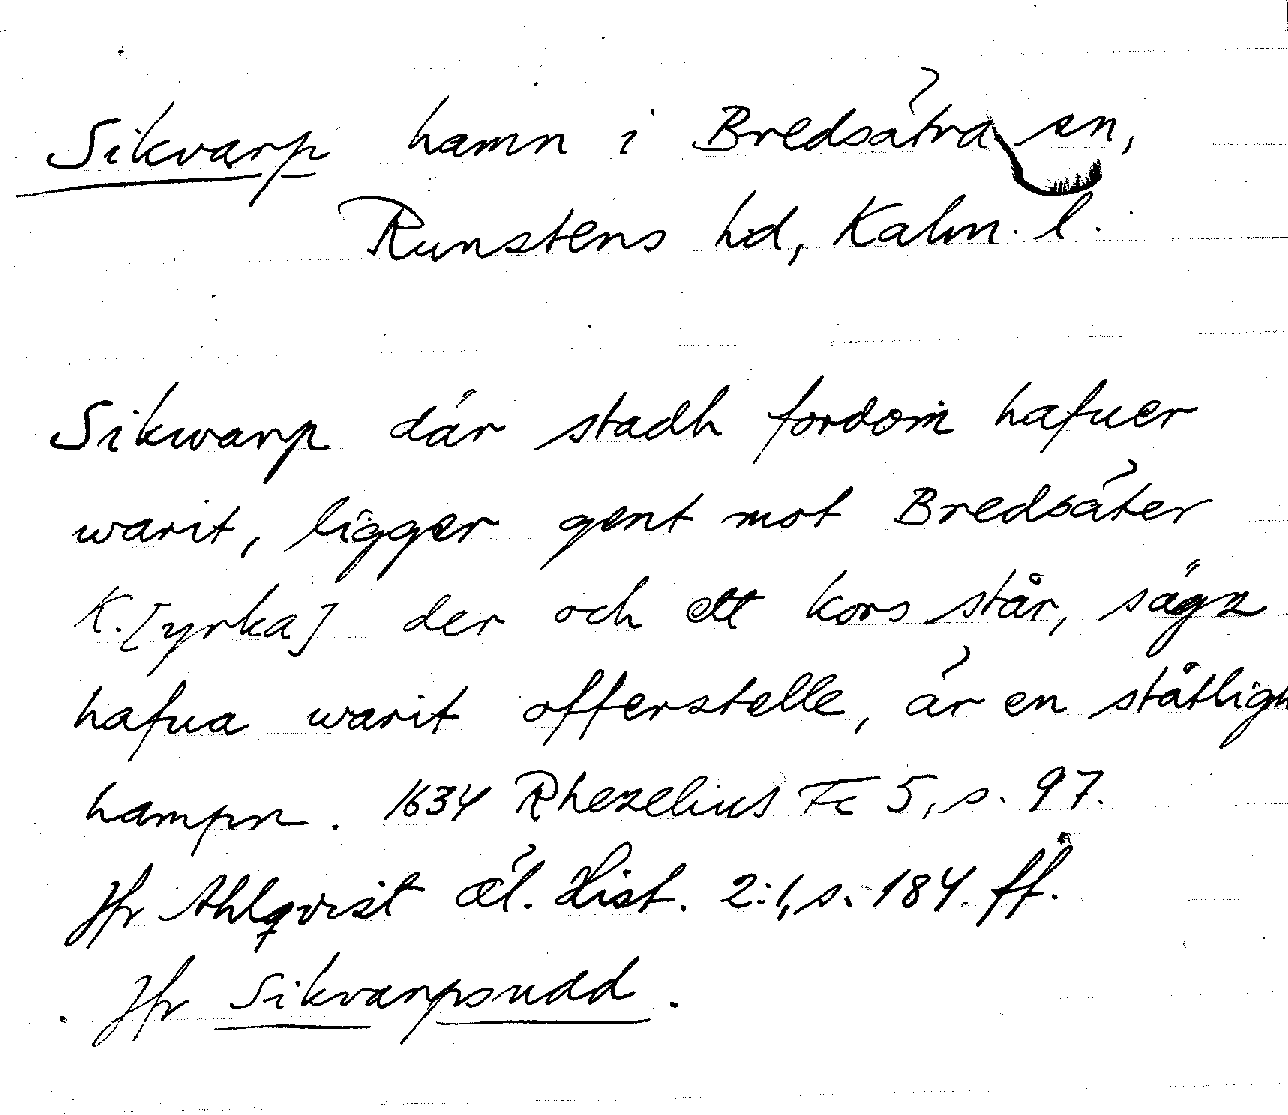 Sikvarp hamn i Bredsätra en,
Runstens hd, Kalm. l.
Sikwarp där stadh fordom hafuer
warit, ligger gent mot Bredsäter
K.[yrka] der och ett kors står, sägz
hafua warit offerstelle, är en ståtligh
hampn. 1634 Rhezelius Fc 5, s. 97.
Jfr Ahlqvist Öl. Hist. 2:1, s. 184 ff.
. Jfr Sikvarpsudd.